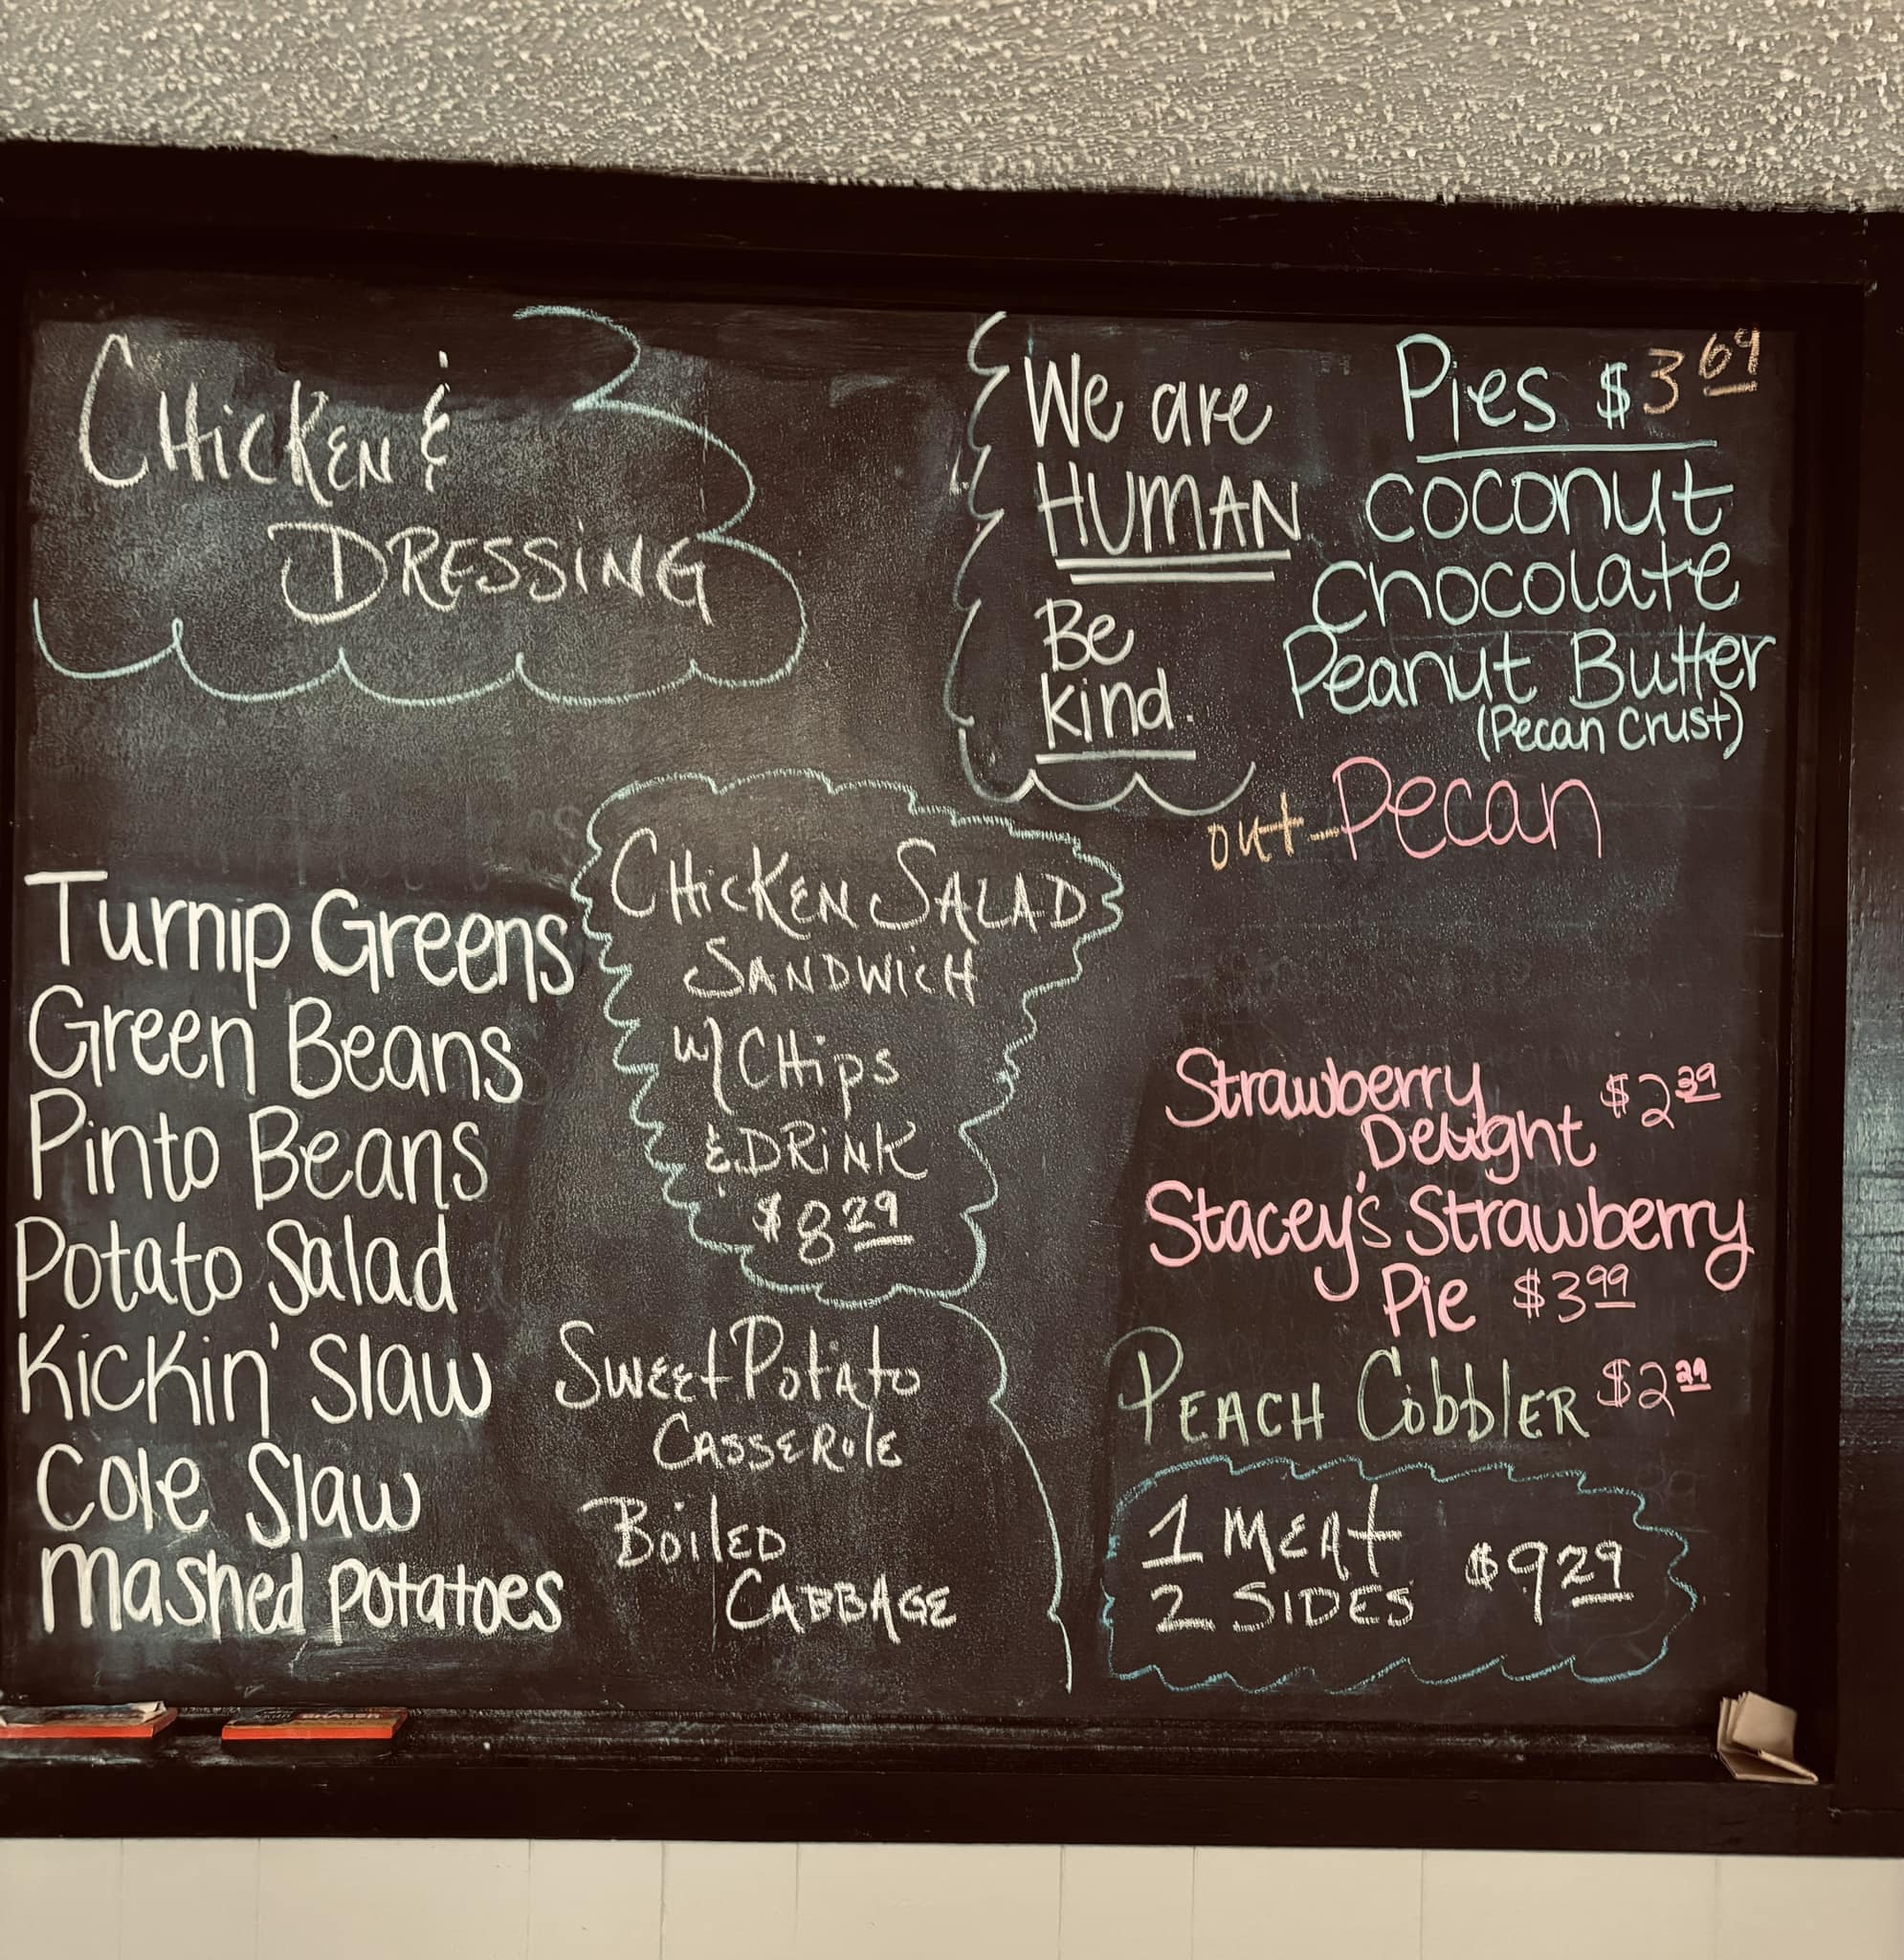 Chicken &
Dressing
We are
HUMAN
Be
kind.
Pies $3 69
coconut
Chocolate
Peanut Butter
(Pecan Crust)
out-Pecan
Turnip Greens
Green Beans
Pinto Beans
Potato Salad
Kickin' Slaw
Cole Slaw
Mashed Potatoes
Chicken Salad
Sandwich
w/ Chips
& Drink
$8 29
Sweet Potato
Casserole
Boiled
Cabbage
Strawberry $2 39
Delight
Stacey's Strawberry
Pie $3 99
Peach Cobbler $2 29
1 Meat
2 Sides $9 29